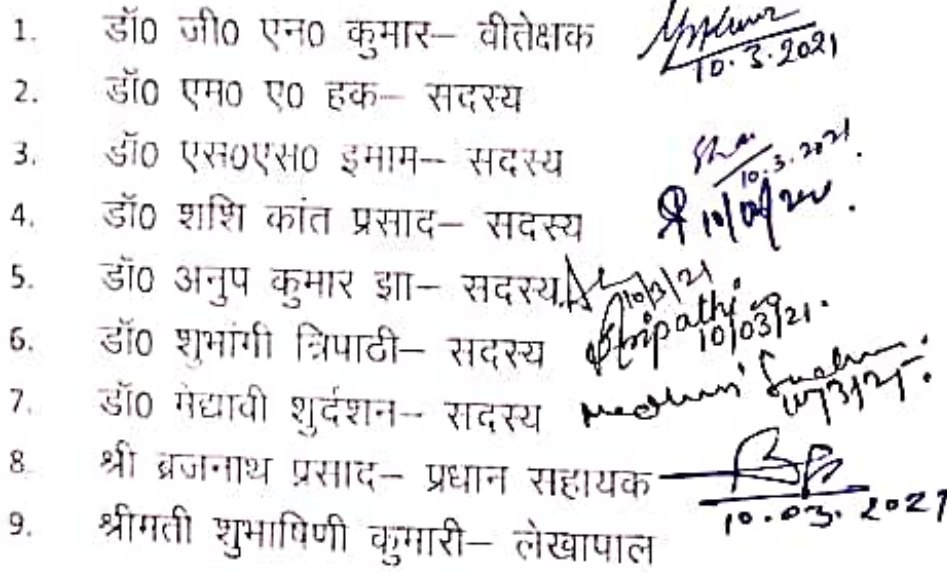 1. डॉ0 जी0 एन0 कुमार– वीतेक्षक
10.3.2021
2. डॉ0 एम0 ए0 हक– सदस्य
3. डॉ0 एस0एस0 इमाम– सदस्य
10.3.2021.
4. डॉ0 शशि कांत प्रसाद– सदस्य
5. डॉ0 अनुप कुमार झा– सदस्य
10/3/21
6. डॉ0 शुभांगी त्रिपाठी– सदस्य Stripathi
10/03/21.
7. डॉ0 मेद्यावी शुर्दशन– सदस्य
8. श्री ब्रजनाथ प्रसाद– प्रधान सहायक
10.03.2021
9. श्रीमती शुभाषिणी कुमारी– लेखापाल